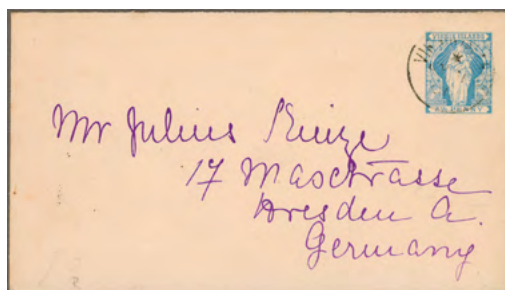 VIRGIN ISLANDS
Mr Julius
17 Maxstrasse
Dresden A.
Germany